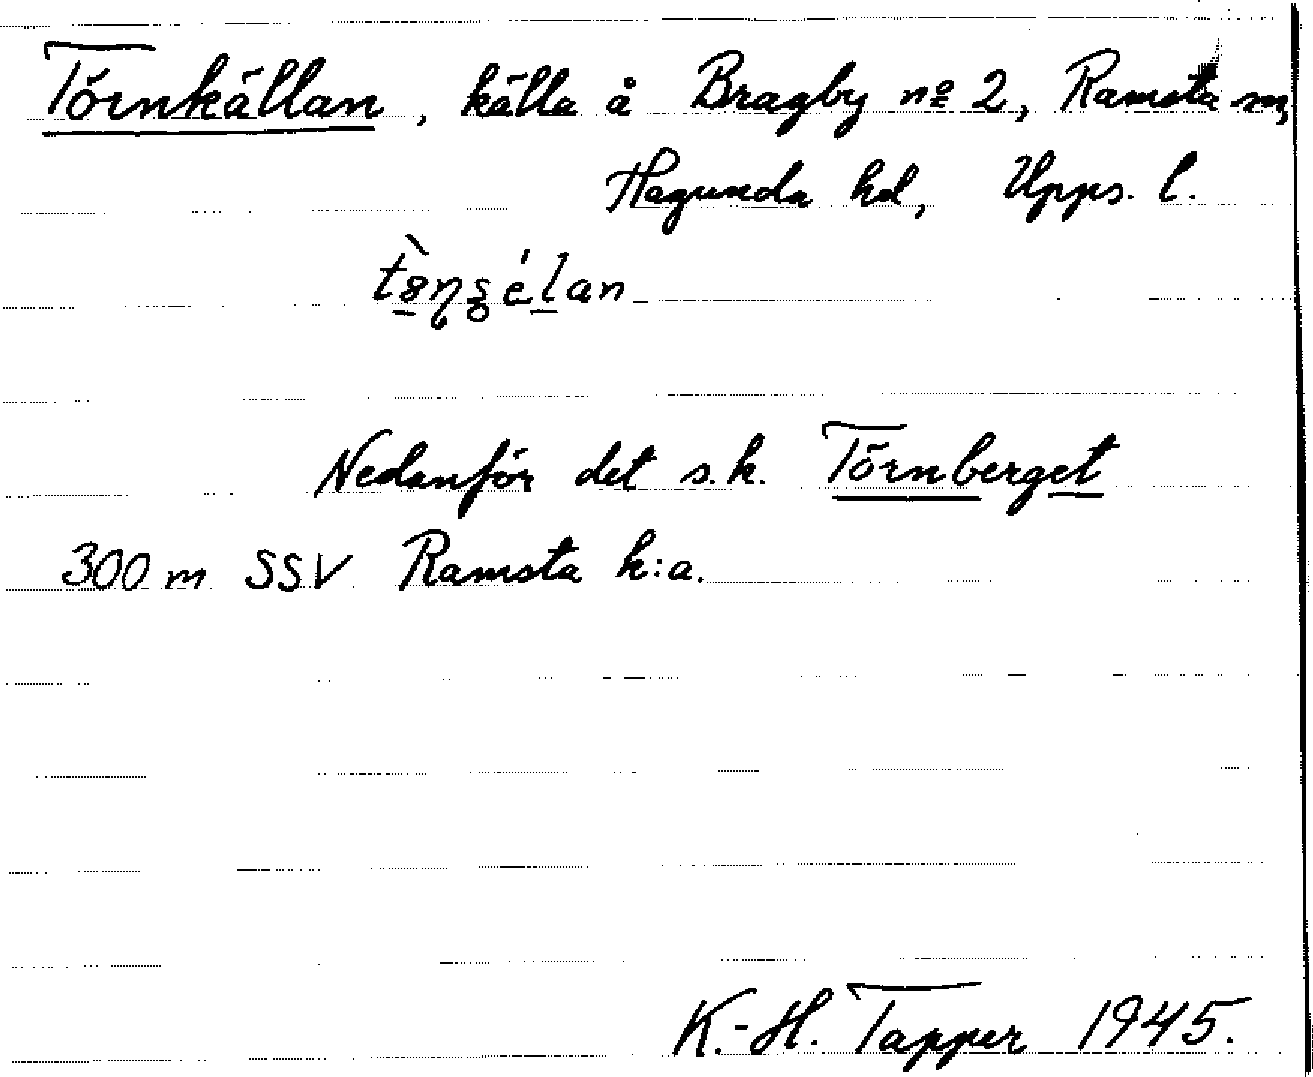 Törnkällan, källa å Bragby nº 2, Ramsta sn,
Hagunda hd, Upps. l.
Nedanför det s.k. Törnberget
300 m SSV Ramsta k:a.
K.-H. Tapper 1945.